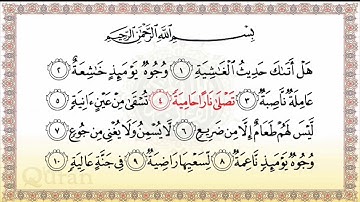 بِسْمِ اللَّهِ الرَّحْمَٰنِ الرَّحِيمِ
هَلْ أَتَىٰكَ حَدِيثُ الْغَٰشِيَةِ ١ وُجُوهٌ يَوْمَئِذٍ خَٰشِعَةٌ ٢
عَامِلَةٌ نَّاصِبَةٌ ٣ تَصْلَىٰ نَارًا حَامِيَةً ٤ تُسْقَىٰ مِنْ عَيْنٍ ءَانِيَةٍ ٥
لَّيْسَ لَهُمْ طَعَامٌ إِلَّا مِن ضَرِيعٍ ٦ لَّا يُسْمِنُ وَلَا يُغْنِي مِن جُوعٍ ٧
وُجُوهٌ يَوْمَئِذٍ نَّاعِمَةٌ ٨ لِّسَعْيِهَا رَاضِيَةٌ ٩ فِي جَنَّةٍ عَالِيَةٍ ١٠
Quran